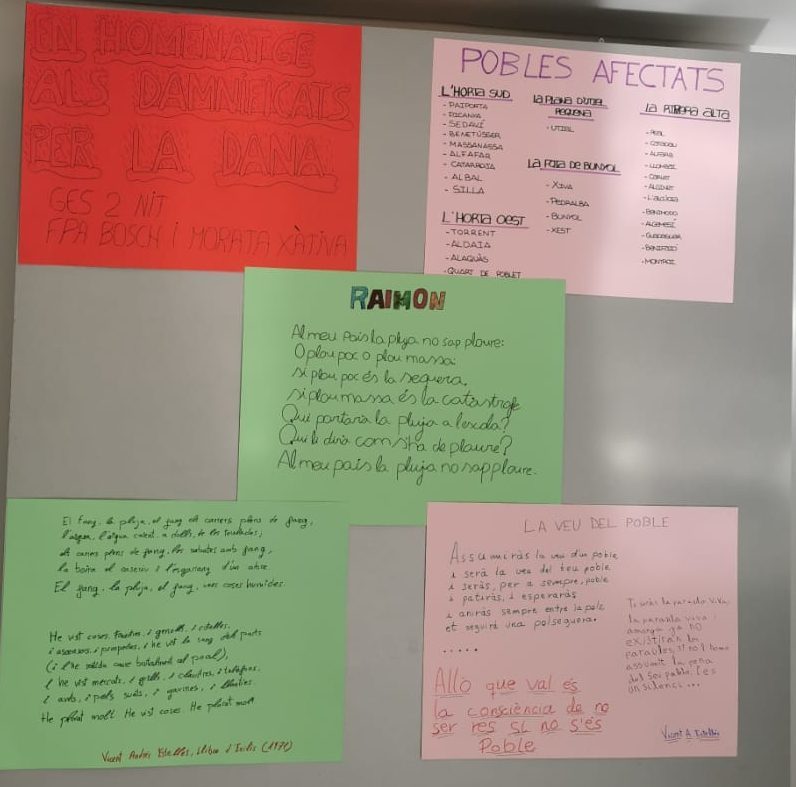 EN HOMENATGE
ALS DAMNIFICATS
PER LA DANA
GES 2 NIT
FPA BOSCH I MORATA XÀTIVA
POBLES AFECTATS
L'HORTA SUD
- PAIPORTA
- PICANYA
- SEDAVÍ
- BENETÚSSER
- MASSANASSA
- ALFAFAR
- CATARROJA
- ALBAL
- SILLA
L'HORTA OEST
- TORRENT
- ALDAIA
- ALAQUÀS
- QUART DE POBLET
LA PLANA D'UTIEL
REQUENA
- UTIEL
LA FOIA DE BUNYOL
- XIVA
- PEDRALBA
- BUNYOL
- XEST
LA RIBERA ALTA
- CATADAU
- LLOMBAI
- CARLET
- ALGINET
- L'ALCÚDIA
- BENIMODO
- ALGEMESÍ
- GUADASSUAR
- BENIFAIÓ
- MONTROI
RAIMON
Al meu país la pluja no sap ploure:
O plou poc o plou massa;
si plou poc és la sequera,
si plou massa és la catastrofe
Qui portarà la pluja a l'escola?
Qui li dirà com s'ha de ploure?
Al meu país la pluja no sap ploure.
El fang, la pluja, el fang els carrers plens de fang,
l'aigua, l'aigua calent, a dolls, de les teulades;
els carrers plens de fang, les sabates amb fang,
la boira al
El fang, la pluja, el fang, unes coses humides.
He vist coses. Finestres, i gerells, i estelles.
i ascensors, i propostes, i he vist la sang dels parts
i he vist mercats, i grills, i claustres, i telèfons,
i ants, i pals suats, i gavines, i llibretes.
He plorat molt. He vist coses. He plorat molt
Vicent Andrés Estellés, Llibre d'Exilis (1971)
LA VEU DEL POBLE
Assumiràs la veu d'un poble
i serà la veu del teu poble
i seràs, per a sempre, poble
i patiràs, i esperaràs
i aniràs sempre entre la pols
et seguirà una polseguera.
.....
Allò que val és
la consciència de no
ser res si no s'és
Poble
Tu seràs la paraula viva,
la paraula viva i
amarga ja no
existiran les
paraules, si no l'home
assumint la pena
del seu poble, i és
un silenci...
Vicent A. Estellés